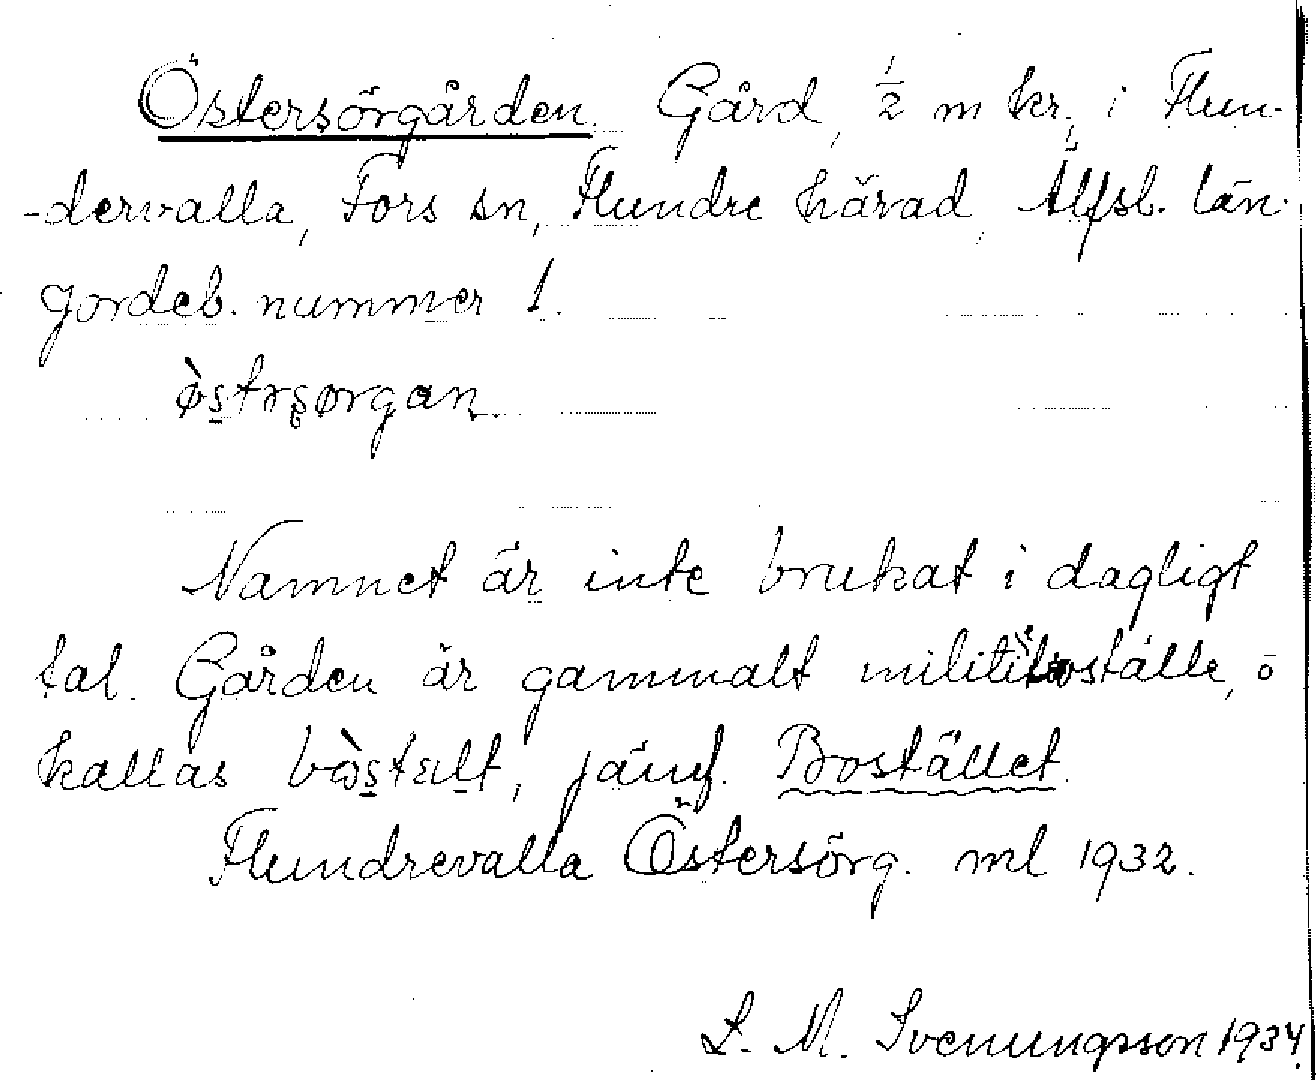 Östersörgården. Gård, ½ m kr., i Flun-
-dervalla, Fors sn, Flundre härad, Älfsb. län.
Jordeb. nummer 1.
ø̀strsørgan.
Namnet är inte brukat i dagligt
tal. Gården är gammalt militieboställe, o
kallas bòstælt, jämf. Bostället.
Flundrevalla Östersörg. ml 1932.
L. M. Svenungsson 1934.